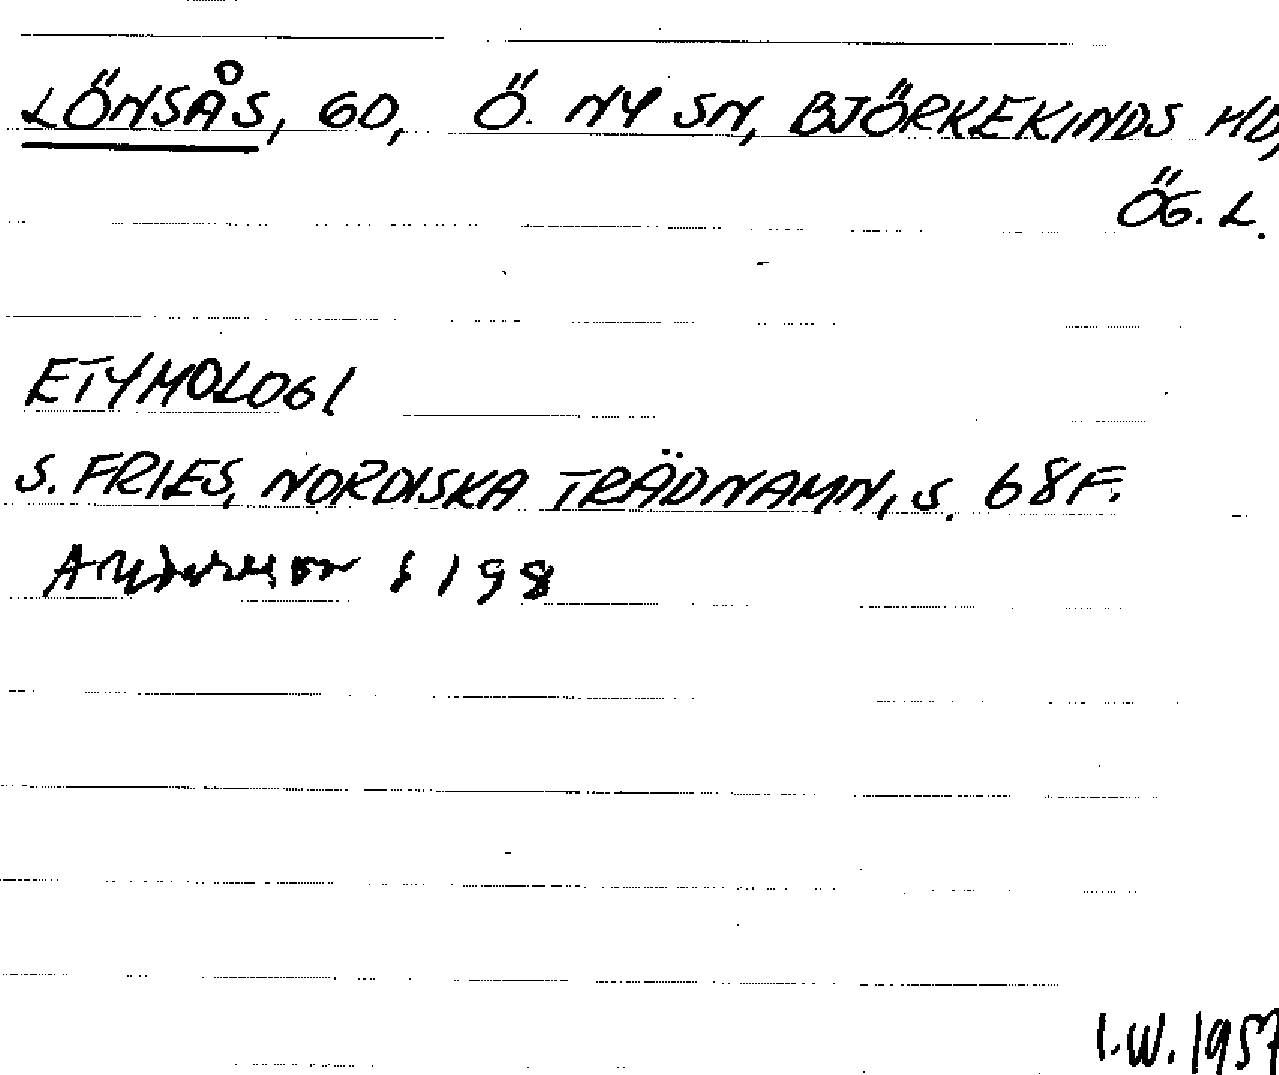 LÖNSÅS, GD, Ö. NY SN, BJÖRKEKINDS HD,
ÖG. L.
ETYMOLOGI
S. FRIES, NORDISKA TRÄDNAMN, S. 68 F.
s 198
I.W. 1957